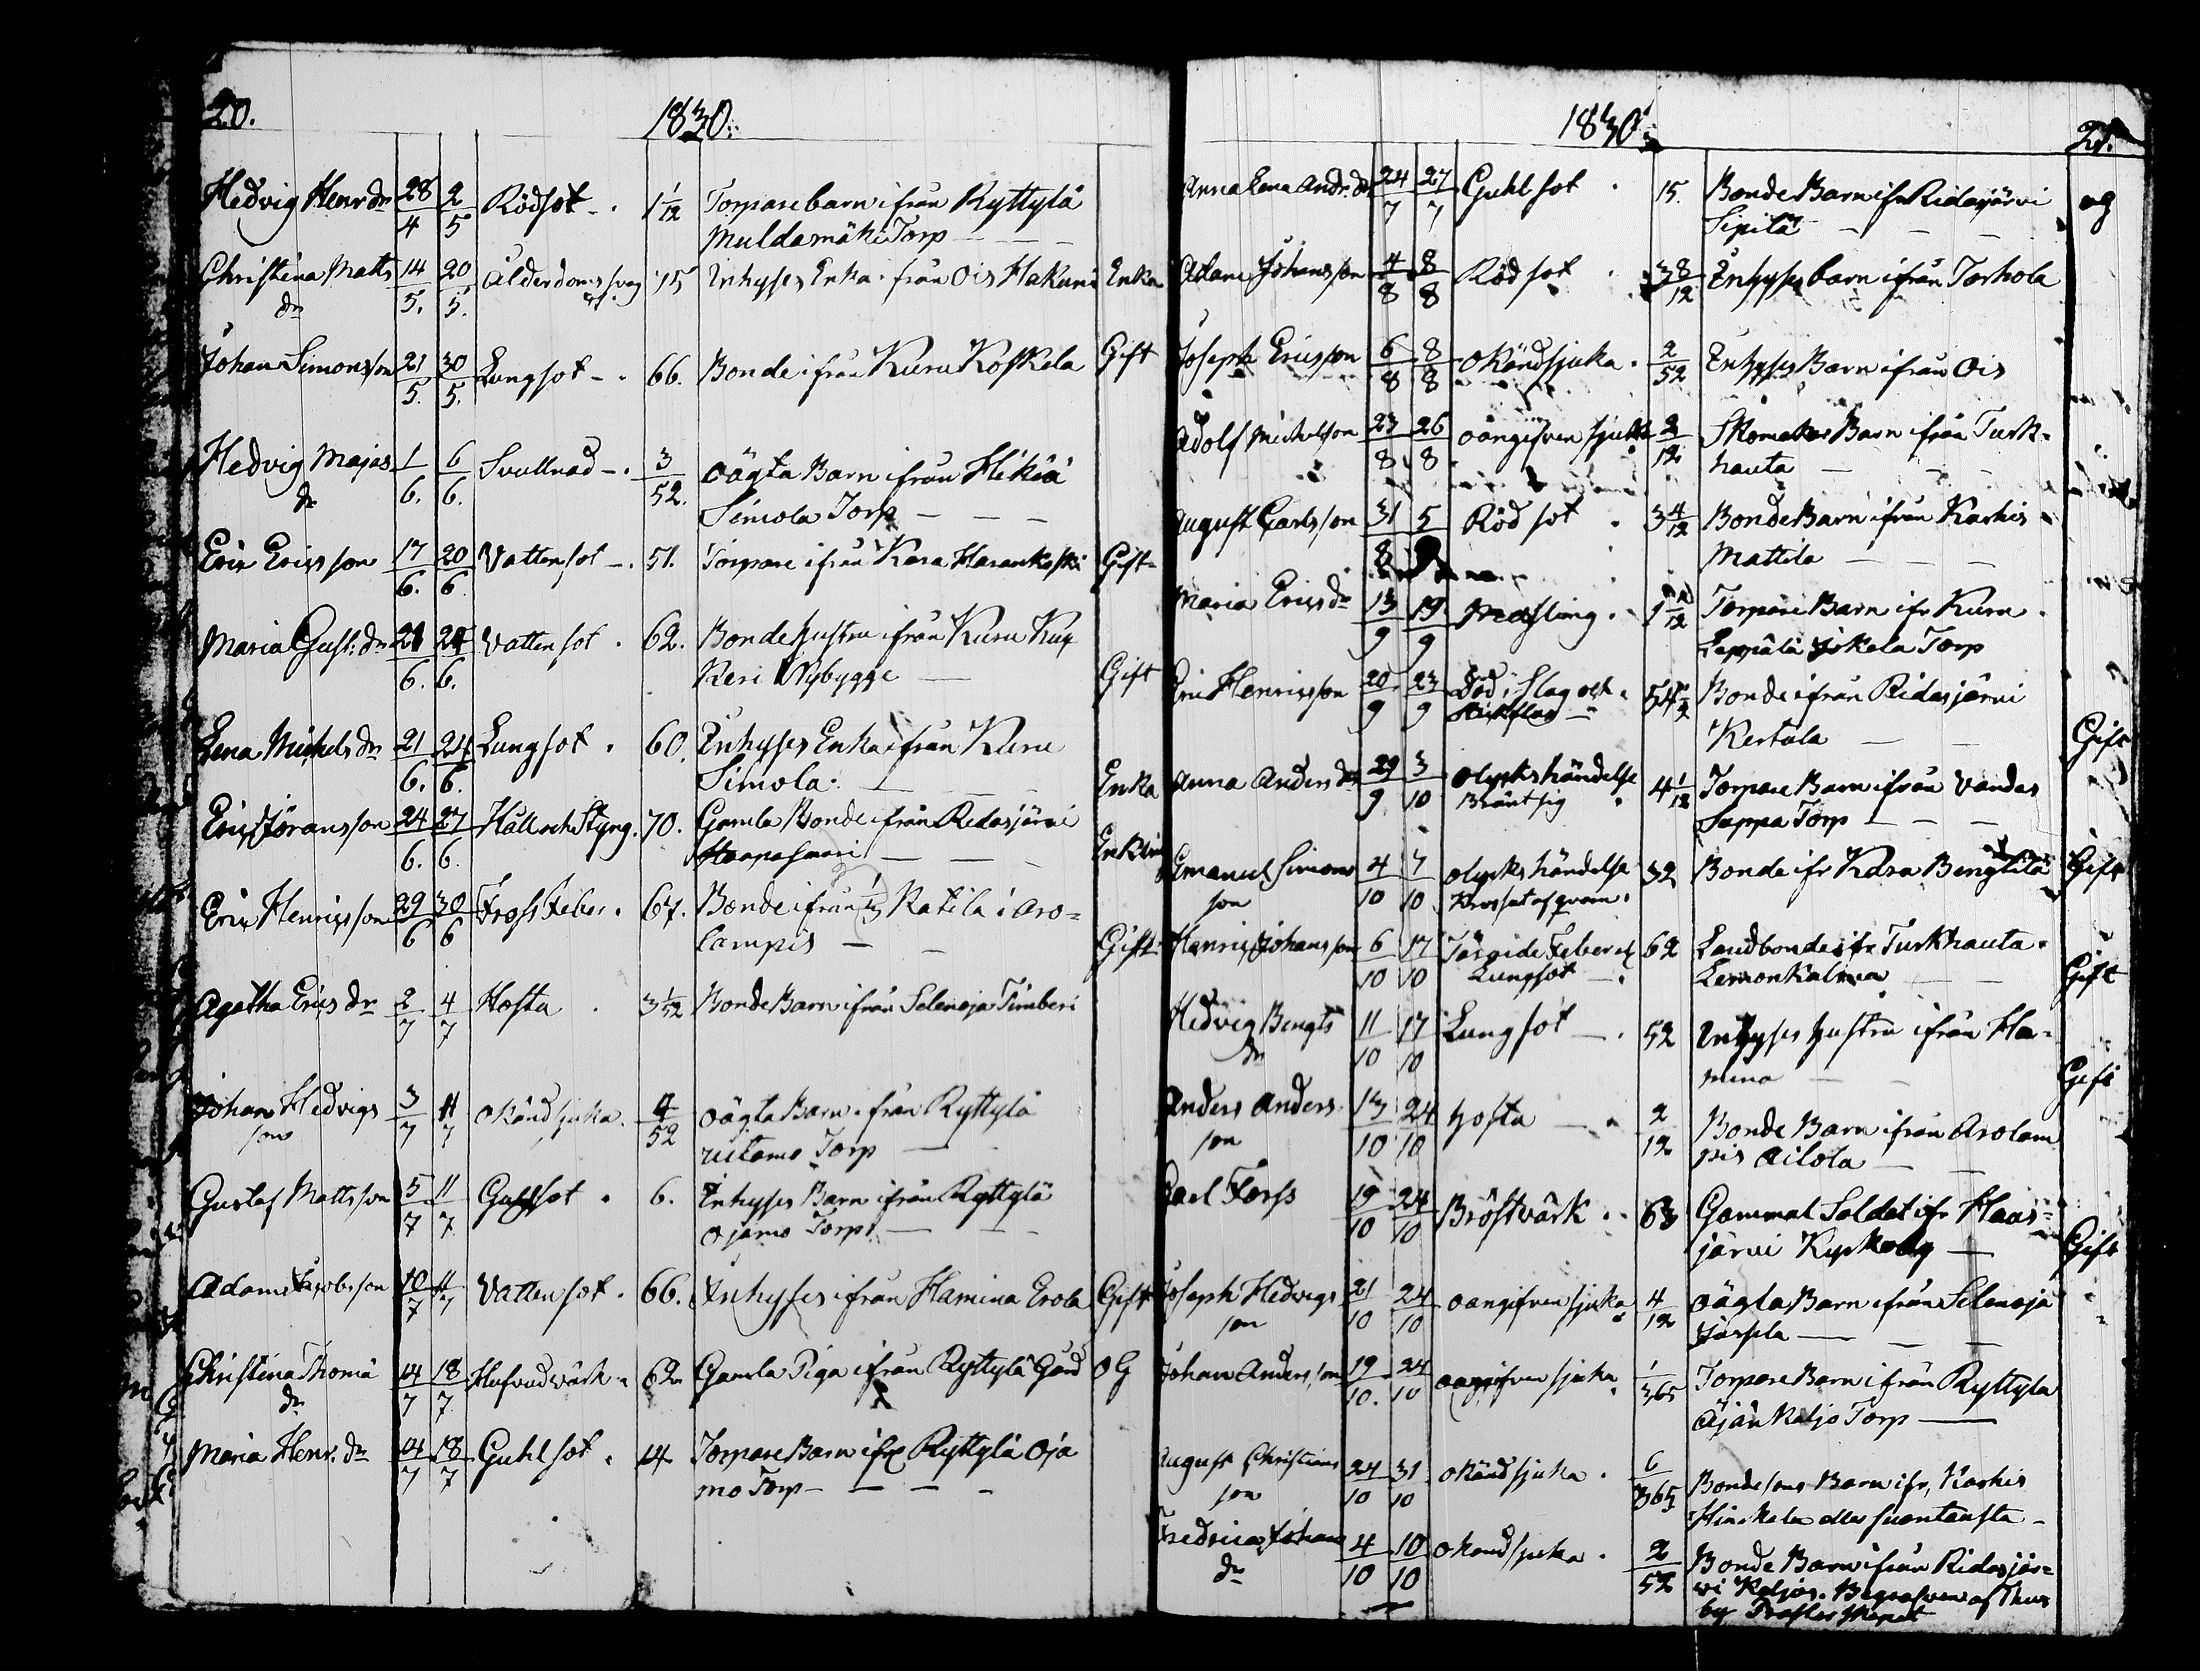 20.
1830.
Hedvig Henr dr 28/4 2/5 Rödsot - . 1 1/12 Torpare barn ifrån Ryttylä
Muldamäki Torp - - -
Christina Matts 14/5. 20/5. Ålderdoms svag 75 Inhyses Enka ifrån Ois Hakuni Enka
dr
Johan Simonsson 21/5. 30/5. Lungsot - . 66. Bonde ifrån Kuru Koskela Gift
Hedvig Majas 1/6. 6/6. Svullnad - . 3/52. oägta Barn ifrån Hikiä
dr Simola Torp - - -
Eric Ericsson 17/6. 20/6. Vattensot - . 51. Torpare ifrån Kara Harankoski Gift
Maria Gust: dr 21/6. 24/6. Vattensot . 62. Bonde hustru ifrån Kuru
Keri Nybygge - Gift
Lena Michels dr 21/6. 24/6. Lungsot . 60. Inhyses Enka ifrån Kuru
Simola. - - - Enka
Eric Göransson 24/6. 27/6. Håll och Styng. 70. Gamla Bonde ifrån Ridasjärvi
Haapasaari - - - Enkling
Eric Henricsson 29/6 30/6 Frossfeber . 67. Bonde ifrån Ratila i Aro=
lampis - - Gift
Agatha Erics dr 2/7 4/7 Hosta . 3 1/12 Bonde Barn ifrån Selenoja Timberi
Johan Hedvigs 3/7 11/7 okänd sjuka. 4/52 oägta Barn ifrån Ryttylä
son Torp -
Gustaf Mattsson 5/7 11/7 Guhlsot . 6. Inhyses Barn ifrån Ryttylä
Ojamo Torp. - -
Adam Jacobsson 10/7 11/7 Vattensot . 66. Inhyses ifrån Hamina Erola Gift
Christina Thomä 14/7 18/7 Hufvudvärk . 62 Gamla Piga ifrån Ryttylä Gård OG
dr
Maria Henr. dr 14/7 18/7 Guhlsot . 14 Torpare Barn ifr Ryttylä Oja
mo Torp - - - -
1830.
21.
Anna Lena Andr. dr 24/7 27/7 Guhlsot . 15. Bonde Barn ifr Ridasjärvi og
Sipilä - - -
Adam Johansson 4/8 8/8 Rödsot . 3 8/12 Inhyses barn ifrån Torhola
Joseph Ericsson 6/8 8/8 okänd sjuka . 2/52 Inhyses Barn ifrån Ois
Adolf Michelson 23/8 26/8 oangifven sjukd 2/12 Skomakar Barn ifrån Turk=
hauta -
August Carlsson 31/8 5/9 Rödsot . 3 4/12 Bonde Barn ifrån Karhis
Mattila - - -
Maria Erics dr 13/9 19/9 Mässling . 1/12 Torpare Barn ifr Kuru
Leppälä Jokela Torp
Eric Henricsson 20/9 23/9 Död i Slag och . 54 1/2 Bonde ifrån Ridasjärvi
- Kertula - - Gift
Anna Anders dr 29/9 3/10 olyckshändelse 4 1/12 Torpare Barn ifrån Vandas
Bränt sig . Seppä Torp - - -
Emanuel Simons 4/10 7/10 olyckshändelse 32 Bonde ifr Kara Bengtilä Gift
son Krossat af qvarn.
Henric Johansson 6/10 17/10 Tärande Feber och 62 Landbonde ifr Turkhauta.
Lungsot - . Lemonkalma - - Gift
Hedvig Bengts 11/10 17/10 Lungsot - . 52 Inhyses hustru ifrån Ha=
dr mina - - Gift
Anders Anders 13/10 24/10 hosta - . 2/12 Bonde Barn ifrån Arolam
son pis Ailola - -
Carl Forss 19/10 24/10 Bröstvärk . . 63 Gammal Soldat ifr Haas=
järvi - Gift
Joseph Hedvigs 21/10 24/10 oangifven sjuka 4/12 oägta Barn ifrån Selenoja
son - - -
Johan Andersson 19/10. 24/10 oangifven sjuka 1/365 Torpare Barn ifrån Ryttylä
Äjänkaljo Torp -
August Christians 24/10 31/10 okänd sjuka . 6/365 Bondesons Barn ifr, Karhis
son eller Suontausta -
Fredrica Johans 4/10 10/10 okänd sjuka . 2/52 Bonde Barn ifrån Ridasjär=
dr vi Kaljas. Begrafven af Thus
by